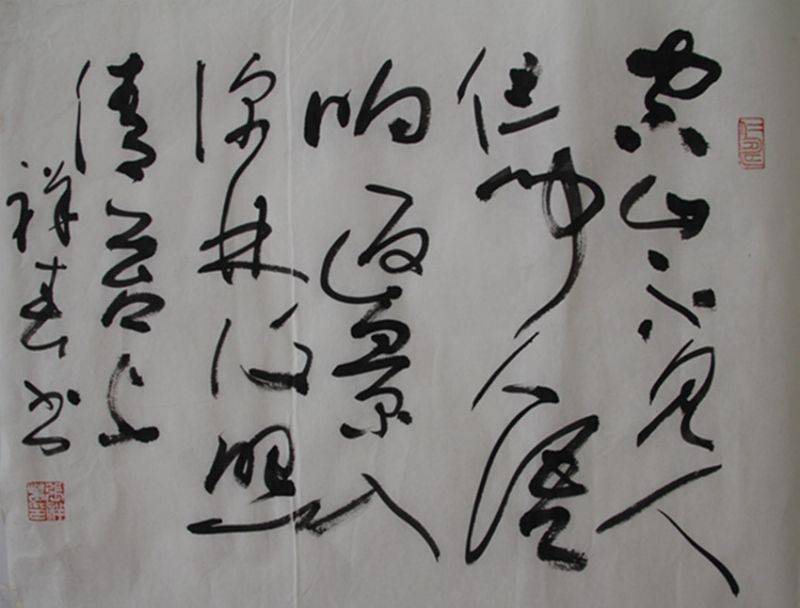 空山不见人
但闻人语
响返景入
深林复照
清苔上
祥春书